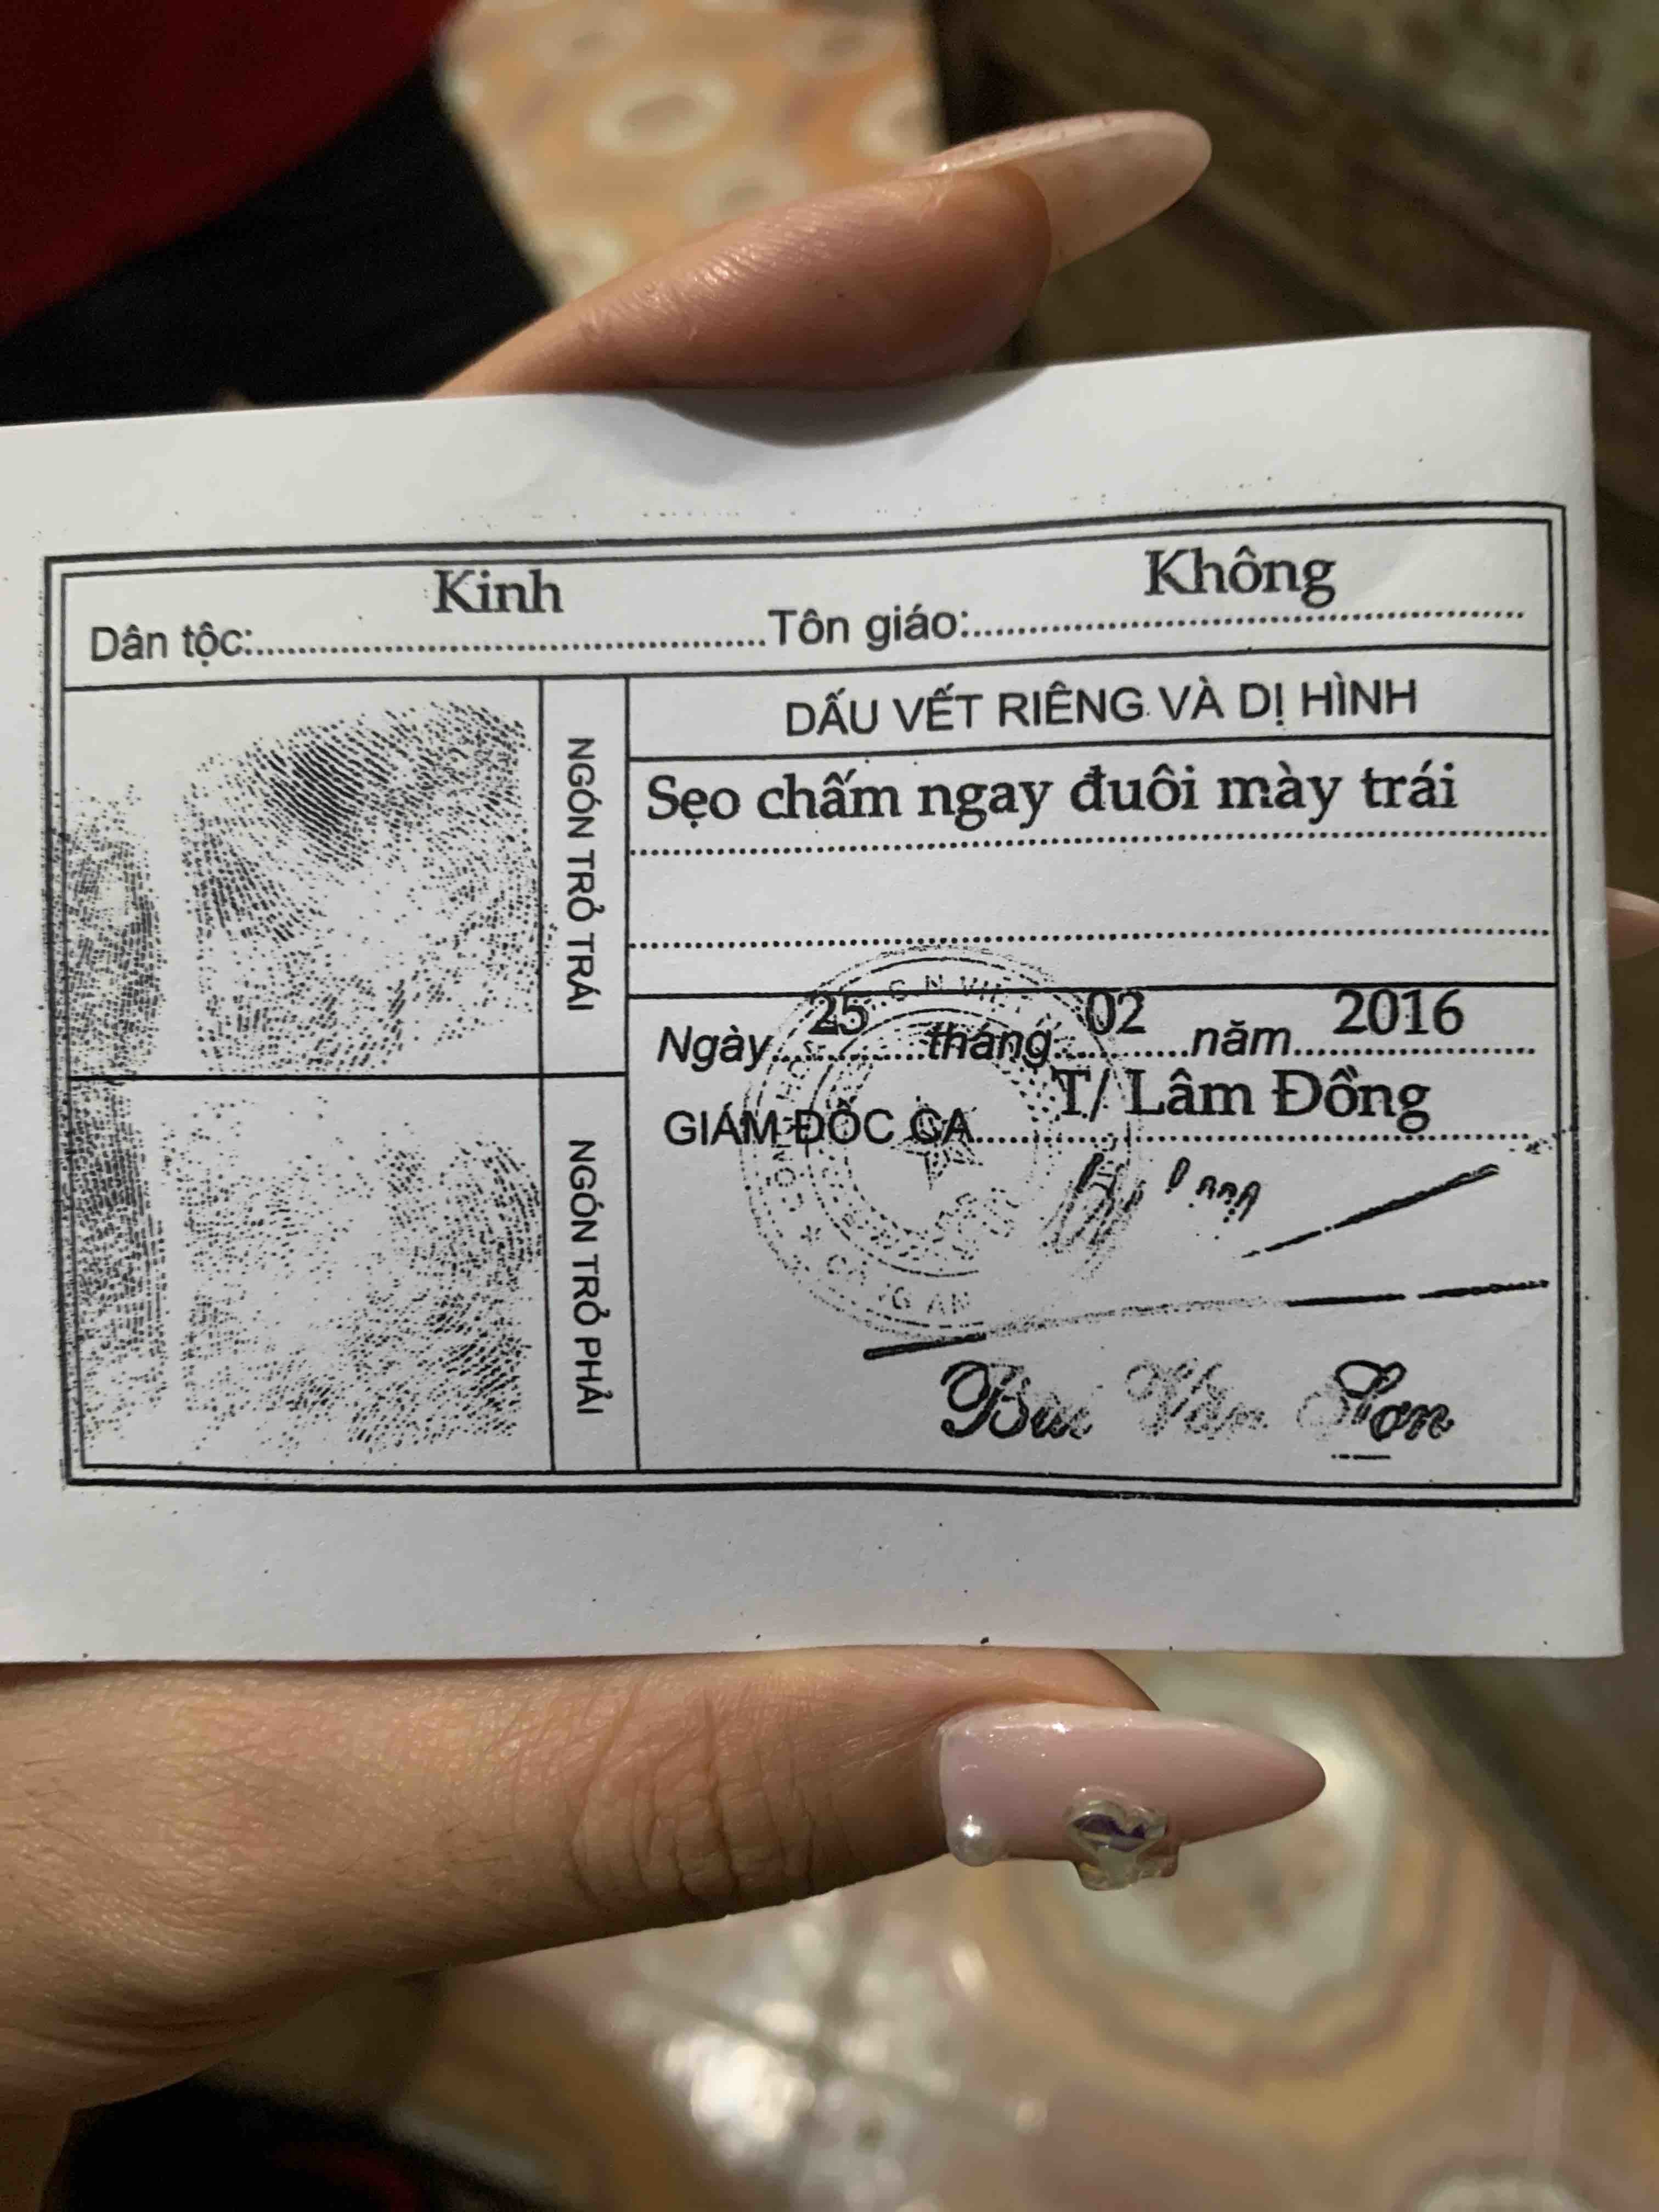 Dân tộc: Kinh Tôn giáo: Không
NGÓN TRỎ TRÁI
DẤU VẾT RIÊNG VÀ DỊ HÌNH
Sẹo chấm ngay đuôi mày trái
Ngày 25 tháng 02 năm 2016
GIÁM ĐỐC CA T/ Lâm Đồng
NGÓN TRỎ PHẢI
Bùi Văn Sơn